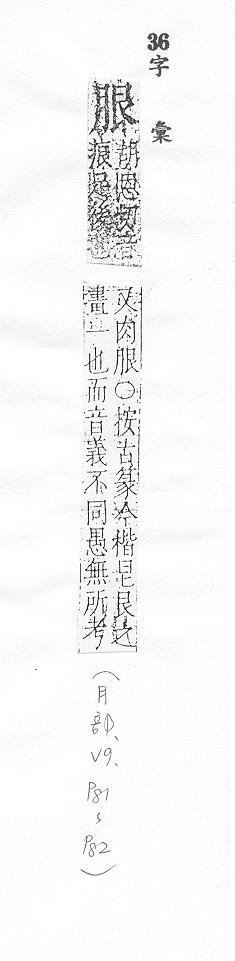 36字彙
胡恩切音
痕足後也
又肉〇按古篆今楷艮之
畫一也而音義不同愚無所考
（月部、V9、P81~P82）